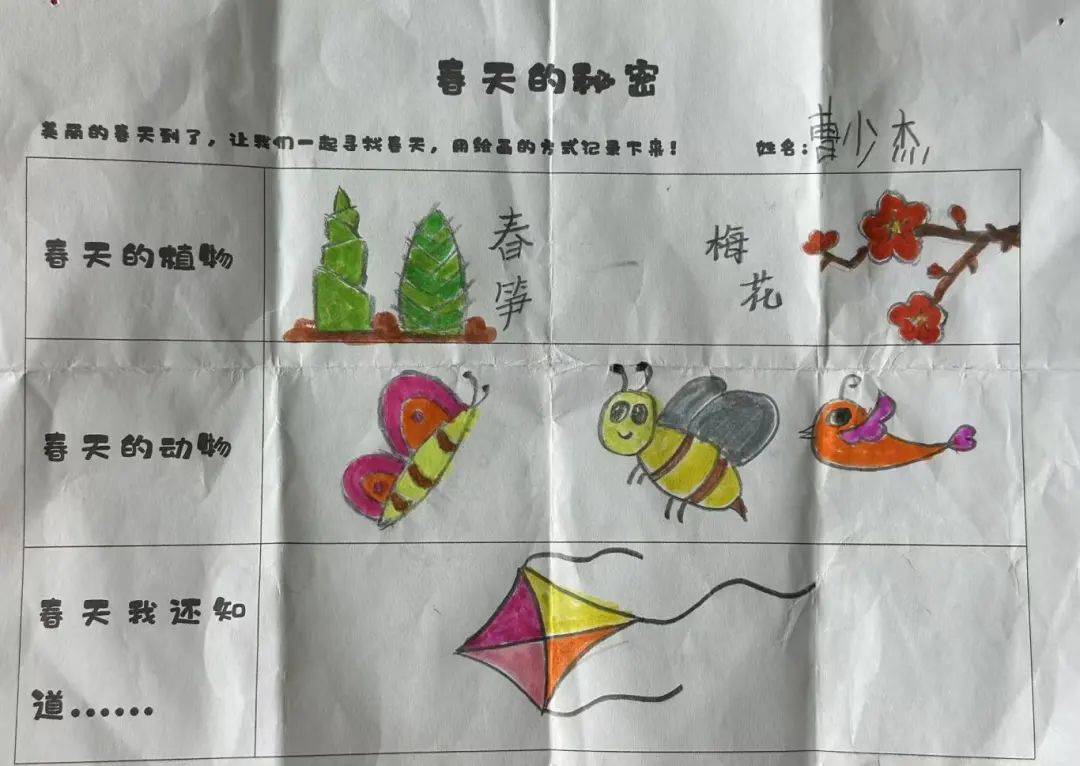 春天的秘密
美丽的春天到了，让我们一起寻找春天，用绘画的方式记录下来！ 姓名：曹少杰
春天的植物
春笋
梅花
春天的动物
春天我还知
道……